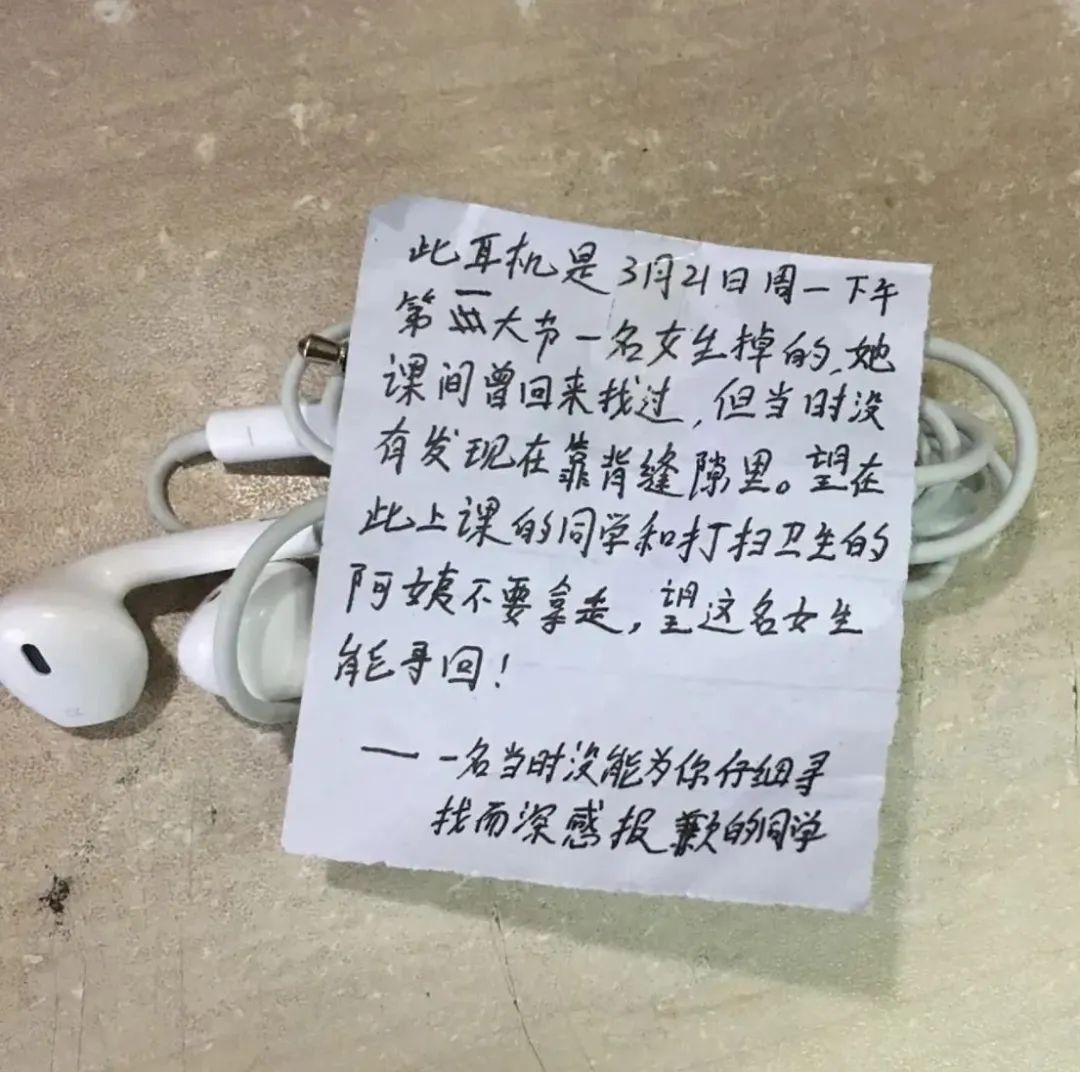 此耳机是3月21日周一下午
第大节一名女生掉的,她
课间曾回来找过,但当时没
有发现在靠背缝隙里。望在
此上课的同学和打扫卫生的
阿姨不要拿走,望这名女生
能寻回!
——一名当时没能为你仔细寻
找而深感报歉的同学